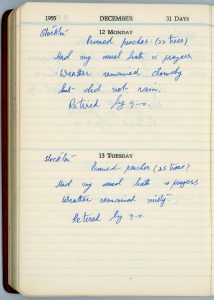 1955 DECEMBER 31 DAYS
12 MONDAY
Stockton
Pruned peaches. (22 trees)
Had my usual bath & prayers.
Weather remained cloudy
but did not rain.
Retired by 9-0.
13 TUESDAY
Stockton
Pruned peaches (25 trees)
Had my usual bath & prayers
Weather remained misty.
Retired by 9-0.